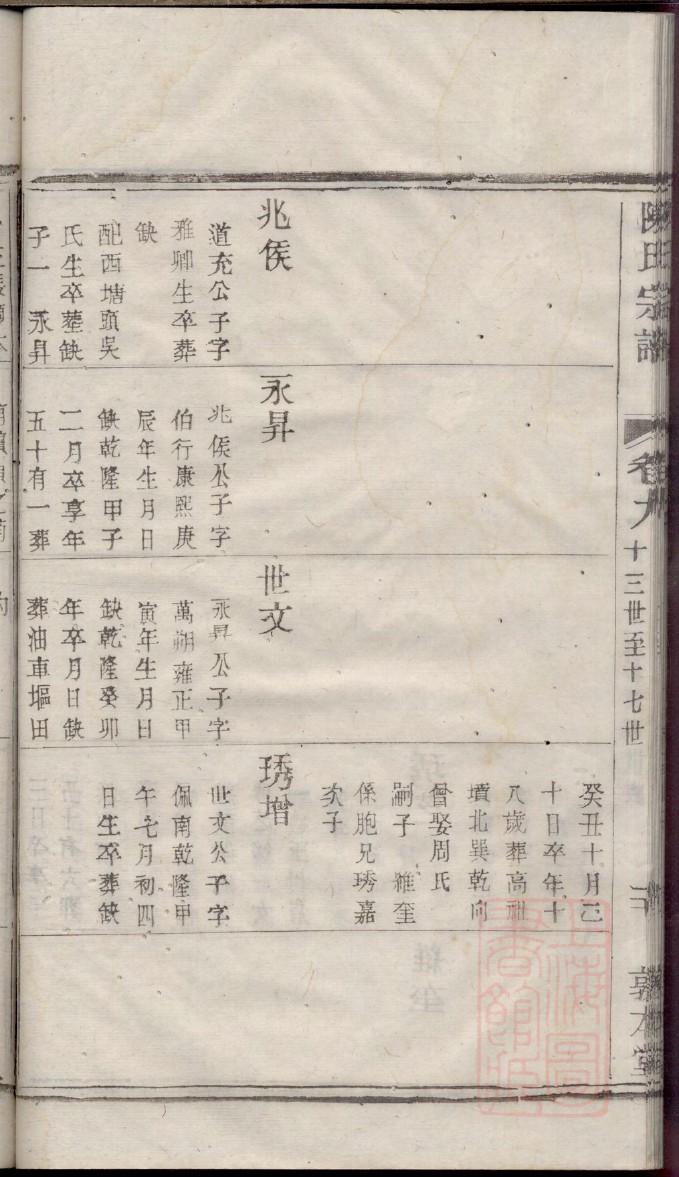 陳氏宗譜
卷九
十三世至十七世
敦本堂
兆侯
道充公子字
雅卿生卒葬
缺
配西塘頭吳
氏生卒塟缺
子一 永昇
永昇
兆侯公子字
伯行康熙庚
辰年生月日
缺乾隆甲子
二月卒享年
五十有一葬
世文
永昇公子字
萬朔雍正甲
寅年生月日
缺乾隆癸卯
年卒月日缺
葬油車塸田
癸丑十月二
十日卒年十
八歲葬高祖
墳北巽乾向
曾娶周氏
嗣子 維奎
係胞兄琇嘉
次子
琇增
世文公子字
佩南乾隆甲
午七月初四
日生卒葬缺
上海圖書館藏